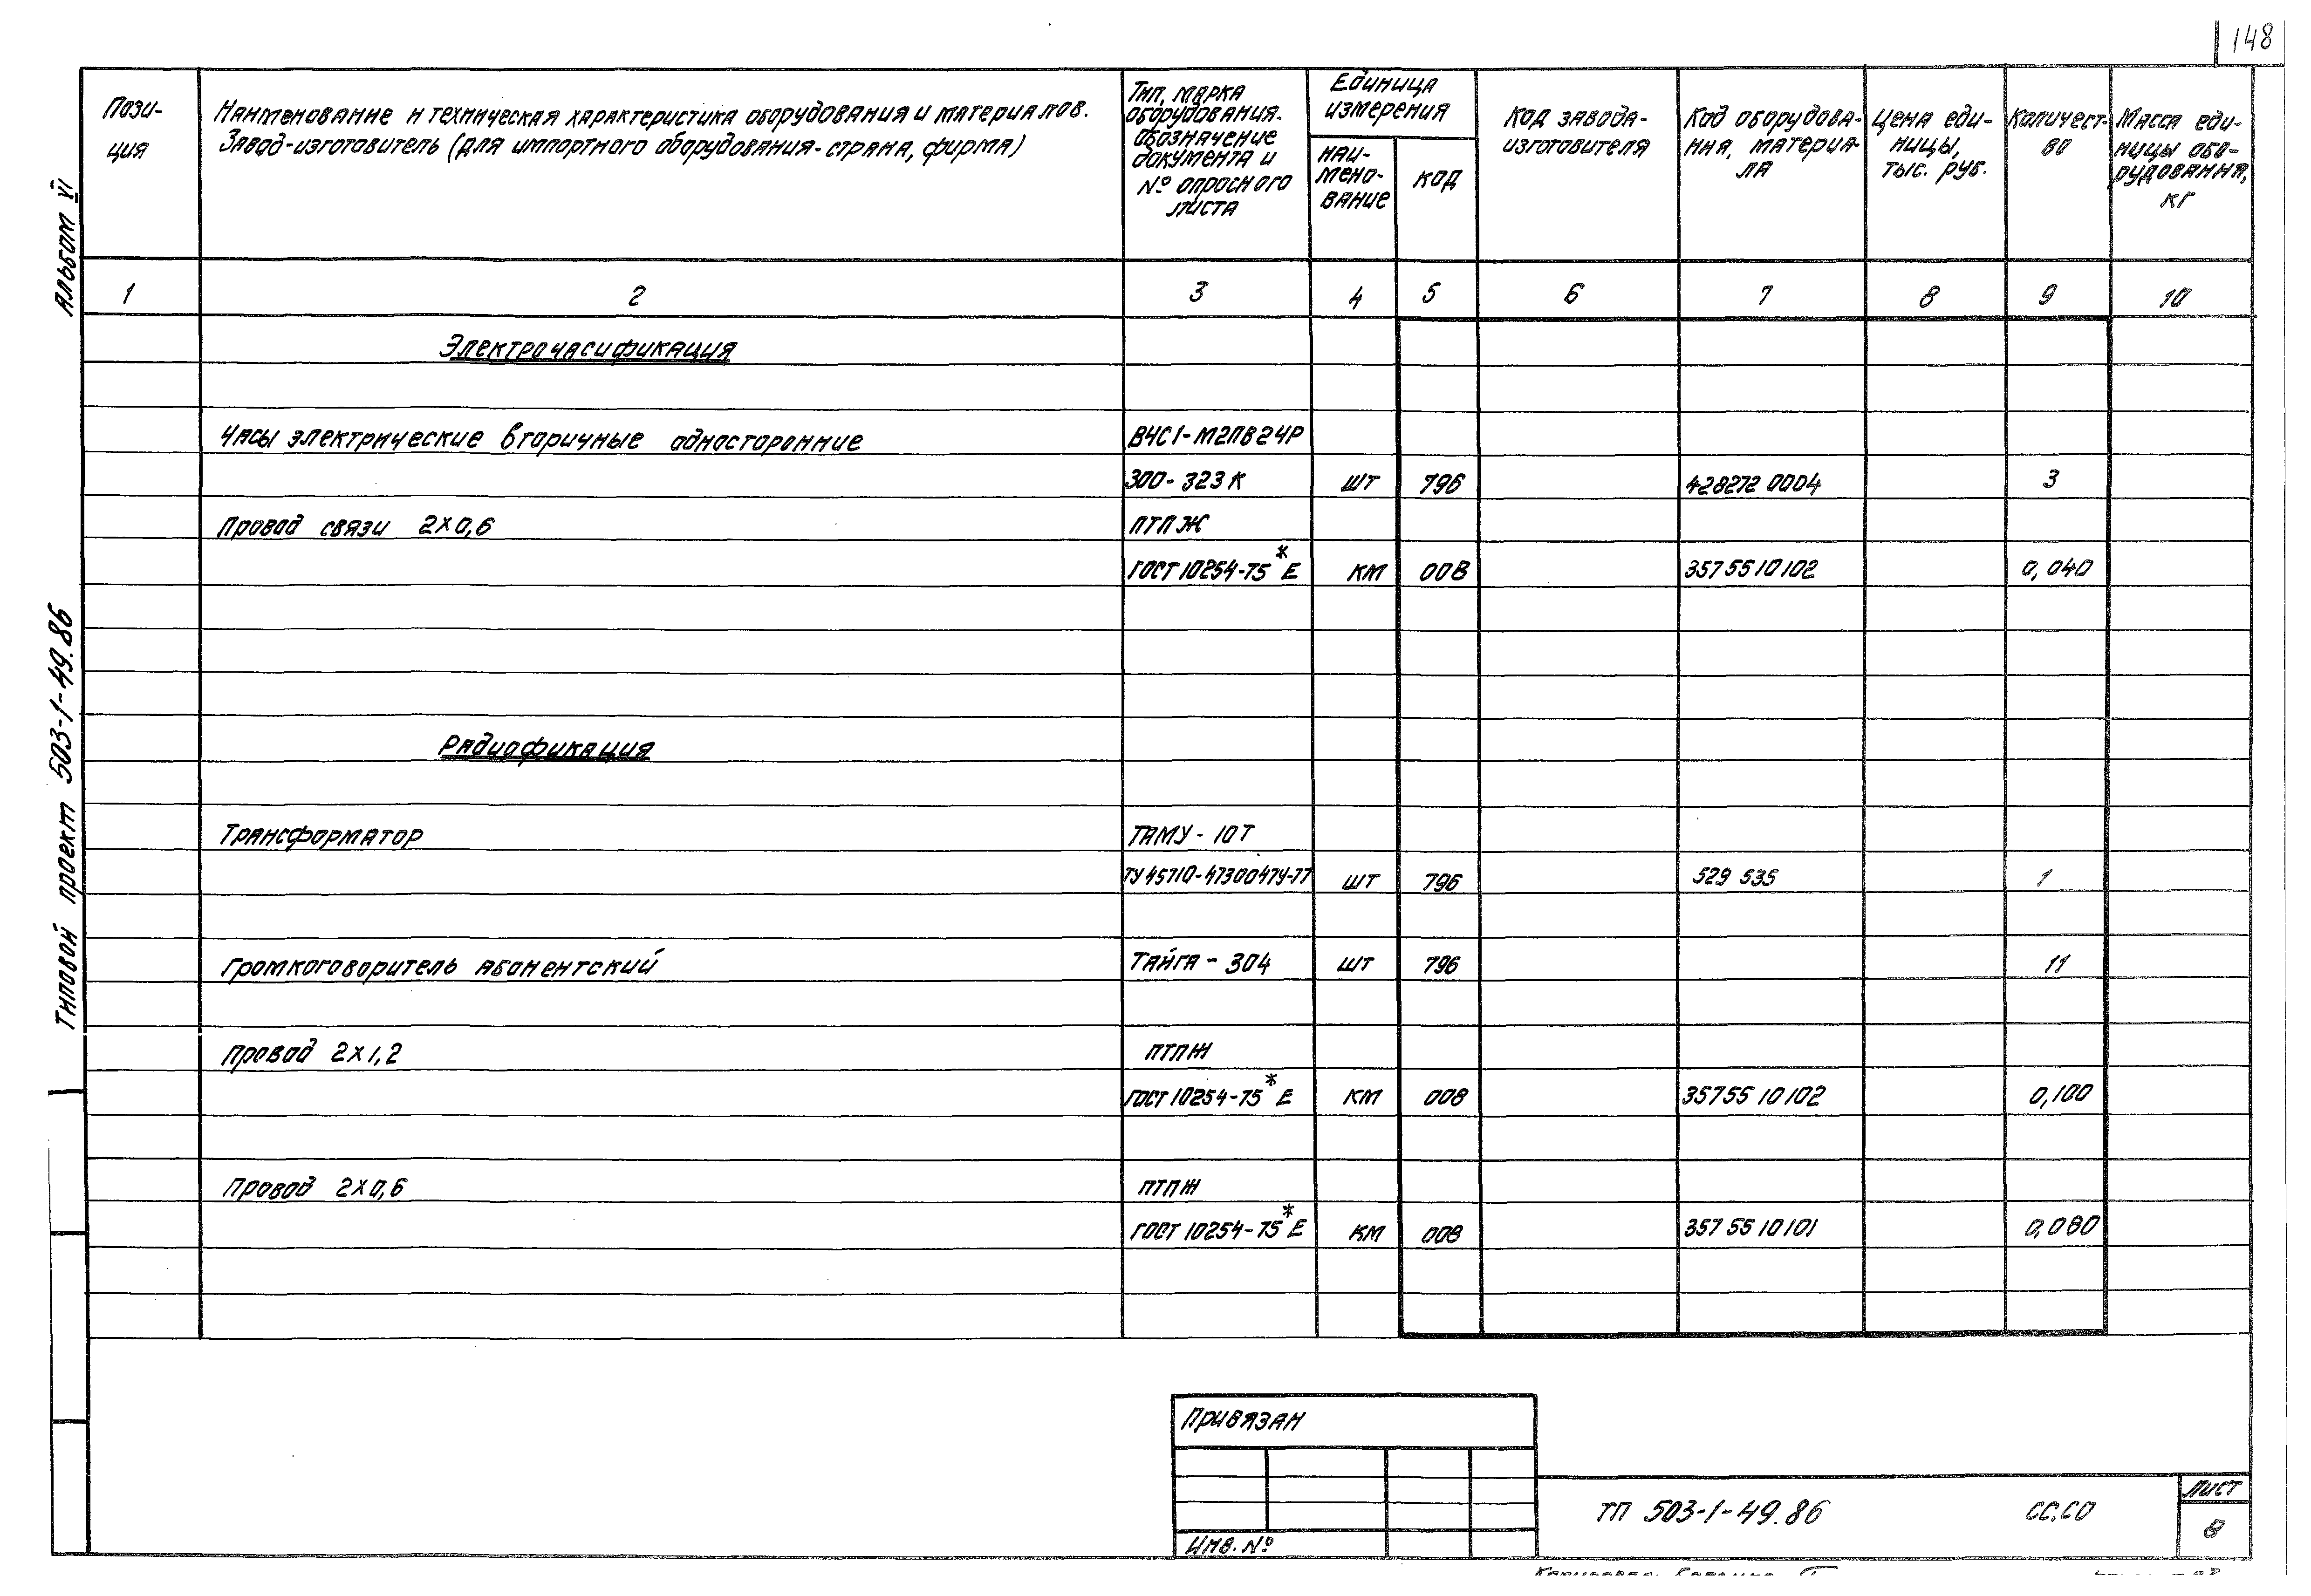 148
Альбом VI
Типовой проект 503-1-49.86
Пози-
ция
Наименование и техническая характеристика оборудования и материалов.
Завод-изготовитель (для импортного оборудования-страна, фирма)
Тип, марка
оборудования.
обозначение
документа и
№ опросного
листа
Единица
измерения
наи-
мено-
вание
код
Код завода-
изготовителя
Код оборудова-
ния, материа-
ла
Цена еди-
ницы,
тыс. руб.
Количест-
во
Масса еди-
ницы обо-
рудования,
кг
1 2 3 4 5 6 7 8 9 10
Электрочасификация
Часы электрические вторичные односторонние ВЧС1-М2ПВ24Р
300-323К шт 796 428272 0004 3
Провод связи 2х0,6 ПТПЖ
ГОСТ 10254-75*Е км 008 35755 10102 0,040
Радиофикация
Трансформатор ТАМУ-10Т
шт 796 529 535 1
Громкоговоритель абонентский Тайга-304 шт 796 11
Провод 2х1,2 ПТПЖ
ГОСТ 10254-75*Е км 008 35755 10102 0,100
Провод 2х0,6 ПТПЖ
ГОСТ 10254-75*Е км 008 357 55 10101 0,080
Привязан
Инв. №
ТП 503-1-49.86 СС.СО
Лист
8